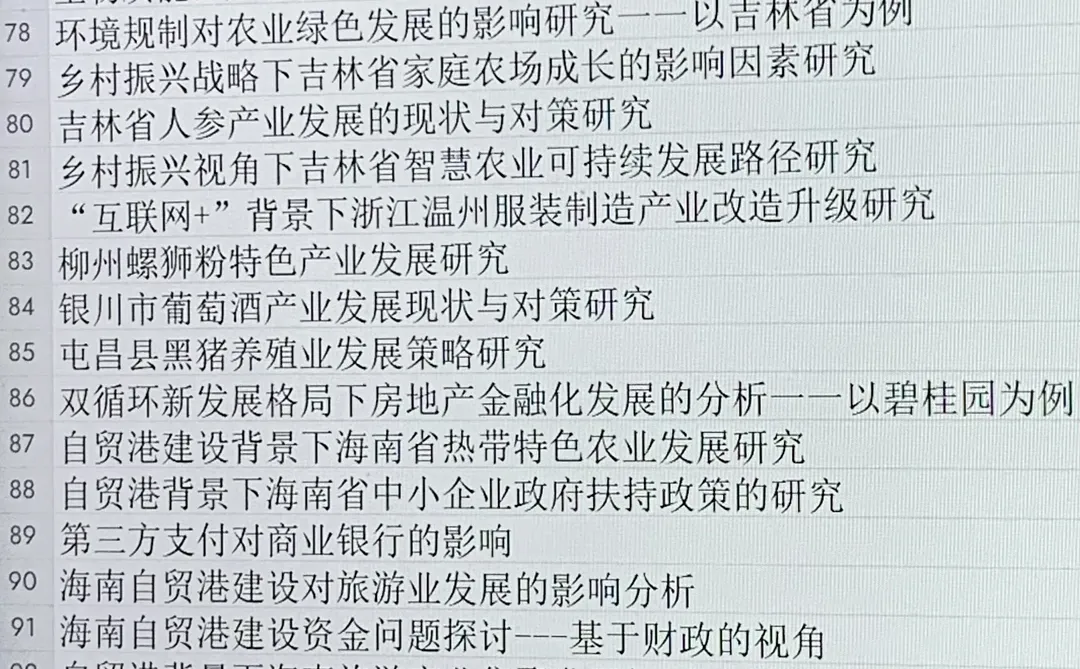 78 环境规制对农业绿色发展的影响研究——以吉林省为例
79 乡村振兴战略下吉林省家庭农场成长的影响因素研究
80 吉林省人参产业发展的现状与对策研究
81 乡村振兴视角下吉林省智慧农业可持续发展路径研究
82 “互联网+”背景下浙江温州服装制造产业改造升级研究
83 柳州螺狮粉特色产业发展研究
84 银川市葡萄酒产业发展现状与对策研究
85 屯昌县黑猪养殖业发展策略研究
86 双循环新发展格局下房地产金融化发展的分析——以碧桂园为例
87 自贸港建设背景下海南省热带特色农业发展研究
88 自贸港背景下海南省中小企业政府扶持政策的研究
89 第三方支付对商业银行的影响
90 海南自贸港建设对旅游业发展的影响分析
91 海南自贸港建设资金问题探讨---基于财政的视角